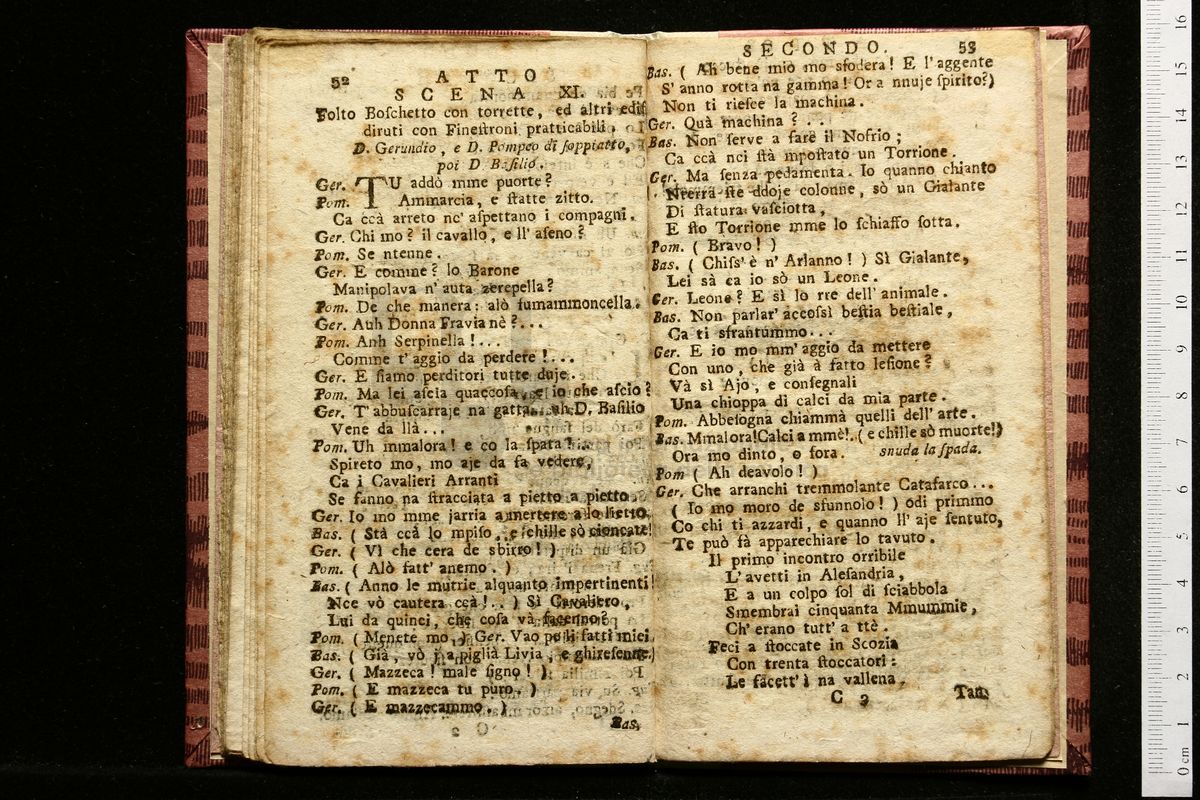 52
ATTO
SCENA XI.
Folto Boſchetto con torrette, ed altri edif
diruti con Fineſtroni pratticabili.
D. Gerundio, e D. Pompeo di ſoppiatto,
poi D Baſilio.
Ger. TU addò mme puorte?
Pom. Ammarcia, e ſtatte zitto.
Ca ccà arreto nc' aſpettano i compagni.
Ger. Chi mo? il cavallo, e ll' aſeno?
Pom. Se ntenne.
Ger. E comme? lo Barone
Manipolava n' auta zerepella?
Pom. De che manera: alò fumammoncella.
Ger. Auh Donna Fravia nè?...
Pom. Anh Serpinella!...
Comme t' aggio da perdere!...
Ger. E ſiamo perditori tutte duje.
Pom. Ma lei aſcia quaccoſa, ſe io che aſcio?
Ger. T' abbuſcarraje na gatta... ah D. Baſilio
Vene da llà...
Pom. Uh mmalora! e co la ſpata!..
Spireto mo, mo aje da fa vedere,
Ca i Cavalieri Arranti
Se fanno na ſtracciata a pietto a pietto.
Ger. Io mo mme jarria a mettere a lo lietto.
Bas. ( Stà ccà lo mpiſo, e chille sò cioncate!
Ger. ( Vì che cera de sbirro! )
Pom. ( Alò fatt' anemo. )
Bas. ( Anno le mutrie alquanto impertinenti!
Nce vò cautera ccà!..) Sì Cavaliero,
Lui da quinci, che coſa và facenno?
Pom. ( Menete mo. ) Ger. Vao pe li fatti miei.
Bas. ( Già, vò piglià Livia, e ghireſenne.)
Ger. ( Mazzeca! male ſigno! )
Pom. ( E mazzeca tu puro. )
Ger. ( E mazzecammo. )
C 2
Bas.
SECONDO. 53
Bas. ( Ah bene mio mo sfodera! E l' aggente
S' anno rotta na gamma! Or a nnuje ſpirito?)
Non ti rieſce la machina.
Ger. Quà machina?..
Bas. Non ſerve a fare il Noſrio;
Ca ccà nci ſtà mpoſtato un Torrione.
Ger. Ma ſenza pedamenta. Io quanno chianto
Nterra ſte ddoje colonne, sò un Gialante
Di ſtatura vaſciotta,
E ſto Torrione mme lo ſchiaffo ſotta.
Pom. ( Bravo! )
Bas. ( Chiſs' è n' Arlanno! ) Sì Gialante,
Lei sà ca io sò un Leone.
Ger. Leone? E sì lo rre dell' animale.
Bas. Non parlar' accoſsì beſtia beſtiale,
Ca ti sfrantummo...
Ger. E io mo mm' aggio da mettere
Con uno, che già à fatto leſione?
Và sì Ajo, e conſegnali
Una chioppa di calci da mia parte.
Pom. Abbeſogna chiammà quelli dell' arte.
Bas. Mmalora! Calci a mmè!. ( e chille sò muorte!)
Ora mo dinto, o fora. snuda la ſpada.
Pom ( Ah deavolo! )
Ger. Che arranchi tremmolante Catafarco...
( Io mo moro de sfunnolo! ) odi primmo
Co chi ti azzardi, e quanno ll' aje ſentuto,
Te può fà apparechiare lo tavuto.
Il primo incontro orribile
L' avetti in Aleſandria,
E a un colpo ſol di ſciabbola
Smembrai cinquanta Mmummie,
Ch' erano tutt' a ttè.
Feci a ſtoccate in Scozia
Con trenta ſtoccatori:
Le facett' ì na vallena,
C 3
Tan